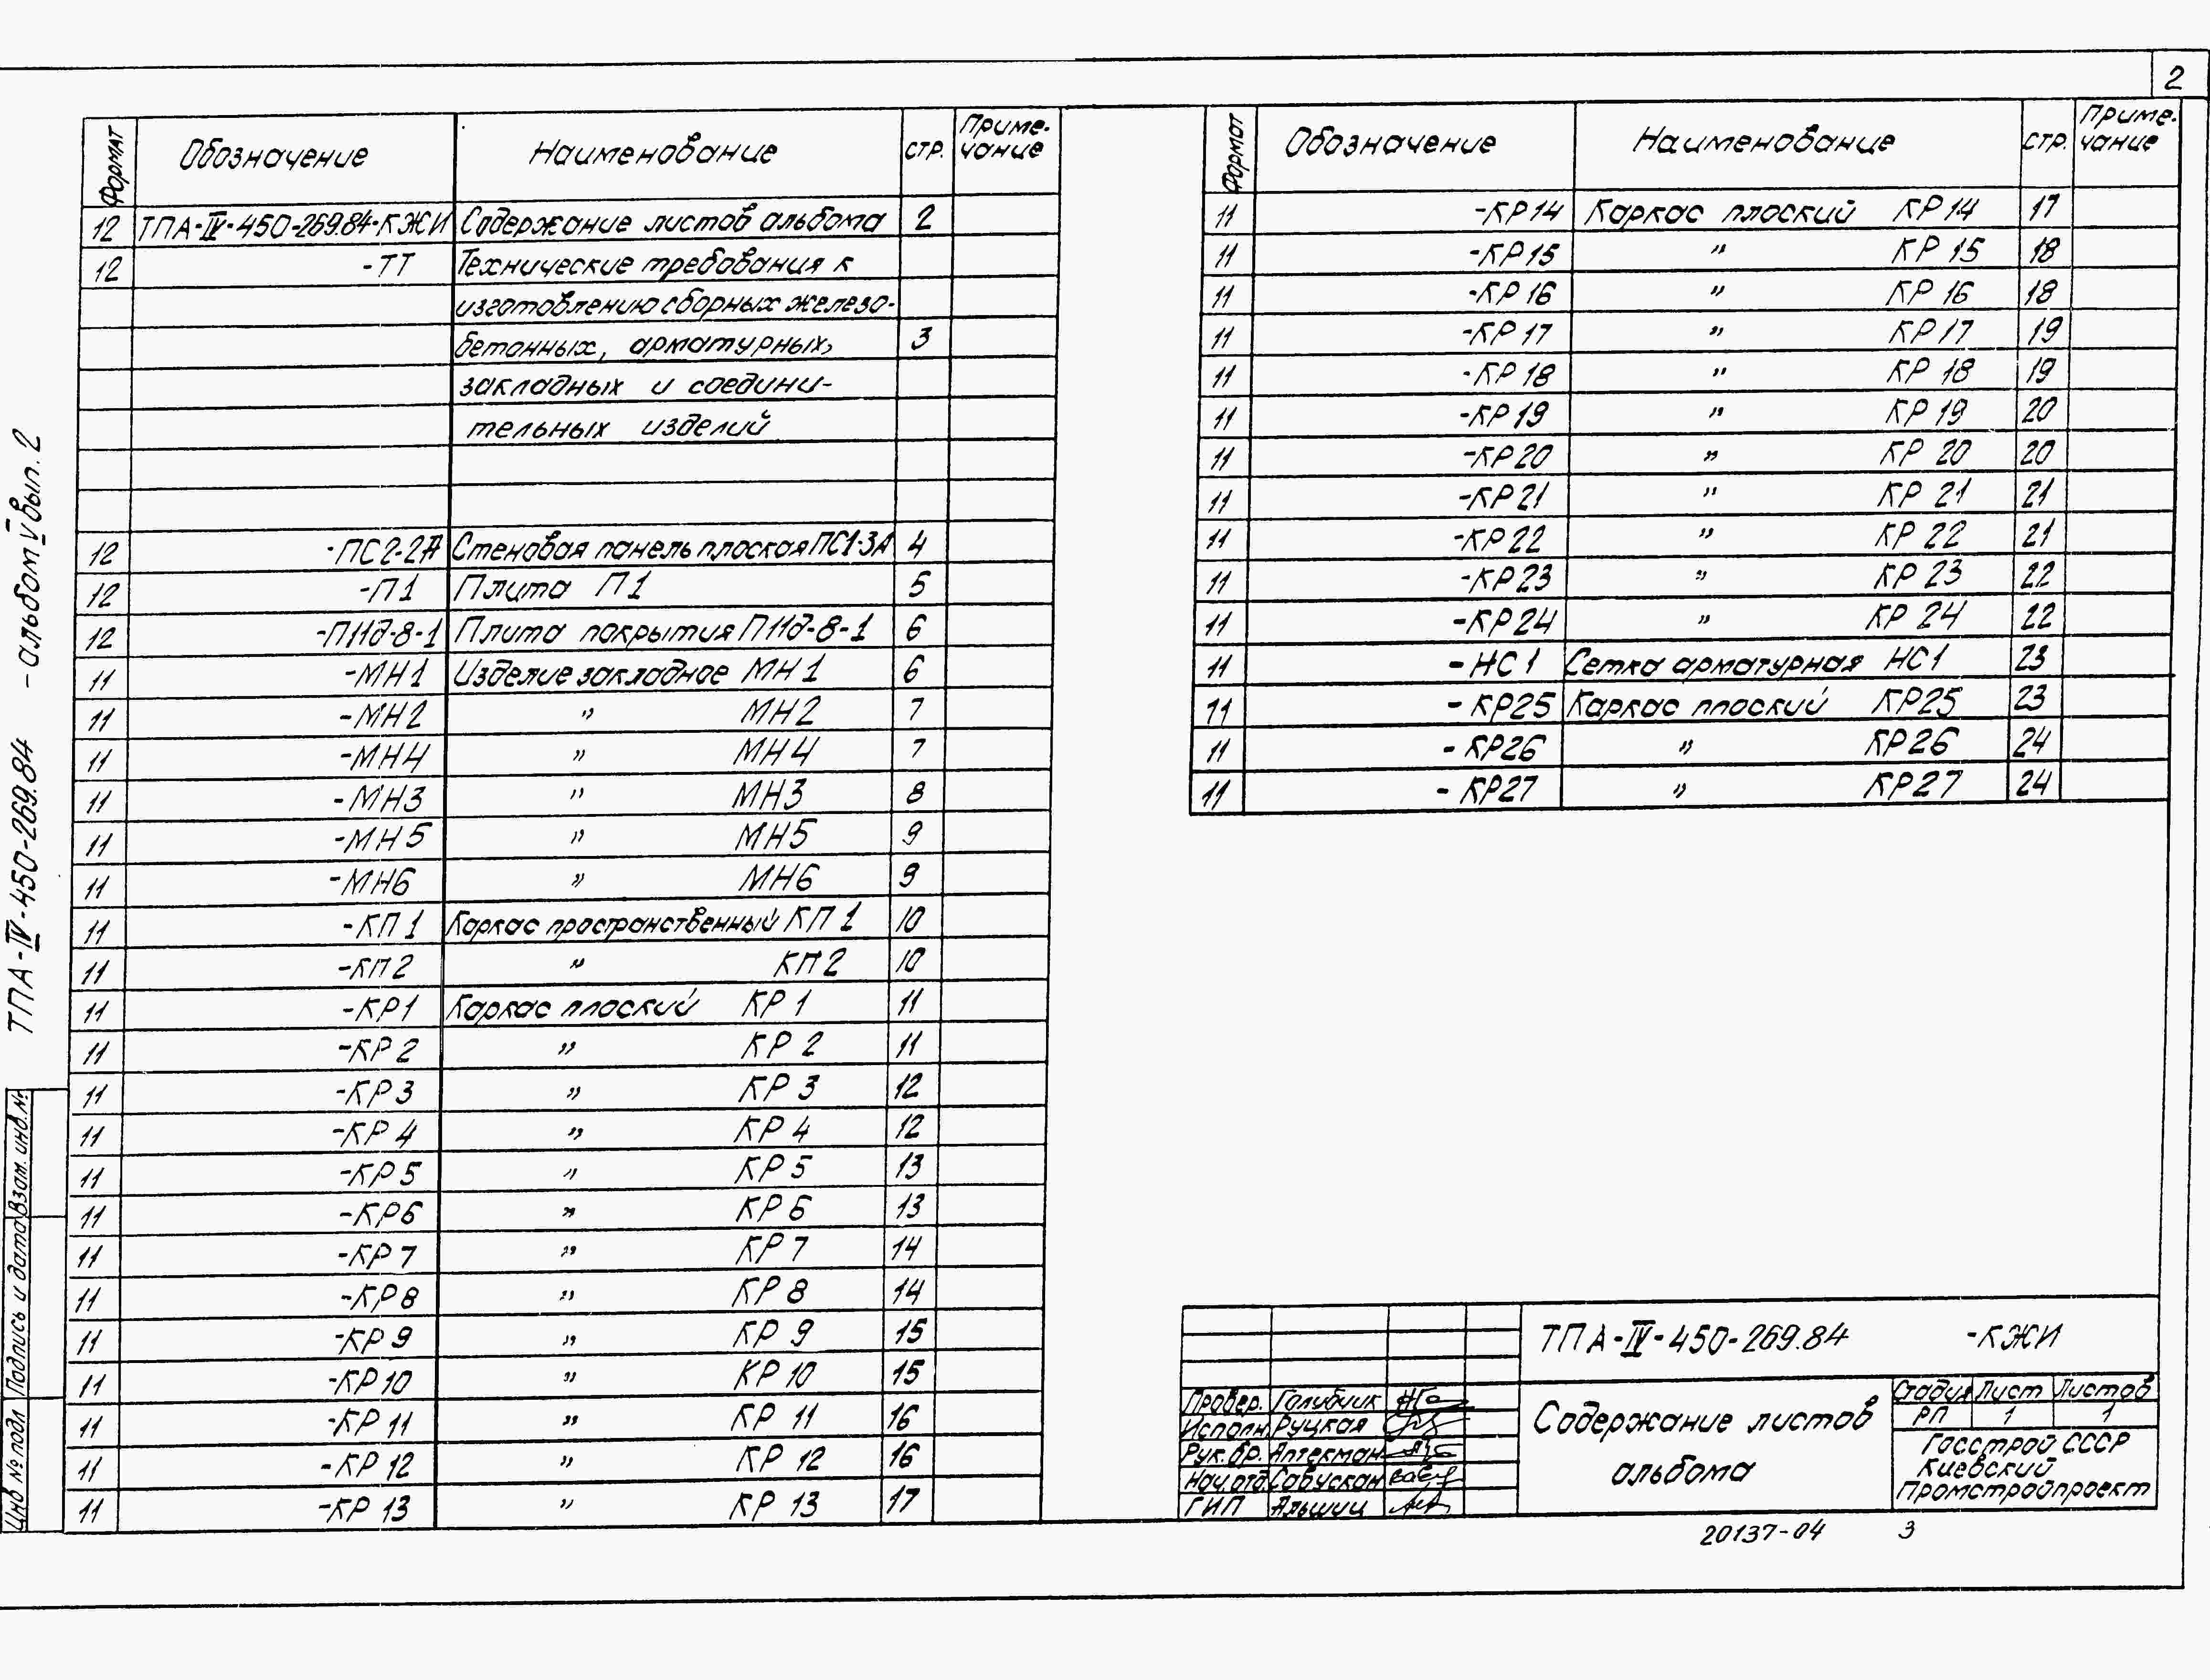 2
Формат Обозначение Наименование стр. Приме-чание
12 ТПА-IV-450-269.84-КЖИ Содержание листов альбома 2
12 -ТТ Технические требования к
изготовлению сборных железо-
бетонных, арматурных, 3
закладных и соедини-
тельных изделий
12 -ПС2-2А Стеновая панель плоская ПС1-3А 4
12 -П1 Плита П1 5
12 -П11д-8-1 Плита покрытия П11д-8-1 6
11 -МН1 Изделие закладное МН1 6
11 -МН2 " МН2 7
11 -МН4 " МН4 7
11 -МН3 " МН3 8
11 -МН5 " МН5 9
11 -МН6 " МН6 9
11 -КП1 Каркас пространственный КП1 10
11 -КП2 " КП2 10
11 -КР1 Каркас плоский КР1 11
11 -КР2 " КР2 11
11 -КР3 " КР3 12
11 -КР4 " КР4 12
11 -КР5 " КР5 13
11 -КР6 " КР6 13
11 -КР7 " КР7 14
11 -КР8 " КР8 14
11 -КР9 " КР9 15
11 -КР10 " КР10 15
11 -КР11 " КР11 16
11 -КР12 " КР12 16
11 -КР13 " КР13 17
Формат Обозначение Наименование стр. Приме-чание
11 -КР14 Каркас плоский КР14 17
11 -КР15 " КР15 18
11 -КР16 " КР16 18
11 -КР17 " КР17 19
11 -КР18 " КР18 19
11 -КР19 " КР19 20
11 -КР20 " КР20 20
11 -КР21 " КР21 21
11 -КР22 " КР22 21
11 -КР23 " КР23 22
11 -КР24 " КР24 22
11 -НС1 Сетка арматурная НС1 23
11 -КР25 Каркас плоский КР25 23
11 -КР26 " КР26 24
11 -КР27 " КР27 24
ТПА-IV-450-269.84 -альбом V вып. 2
Взам. инв.№
Подпись и дата
Инв № подл
ТПА-IV-450-269.84 -КЖИ
Провер. Голибчик
Исполн. Руцкая
Рук.бр. Аптекман
Нач.отд. Сабускан
ГИП Альшиц
Содержание листов
альбома
Стадия Лист Листов
РП 1 1
Госстрой СССР
Киевский
Промстройпроект
20137-04 3